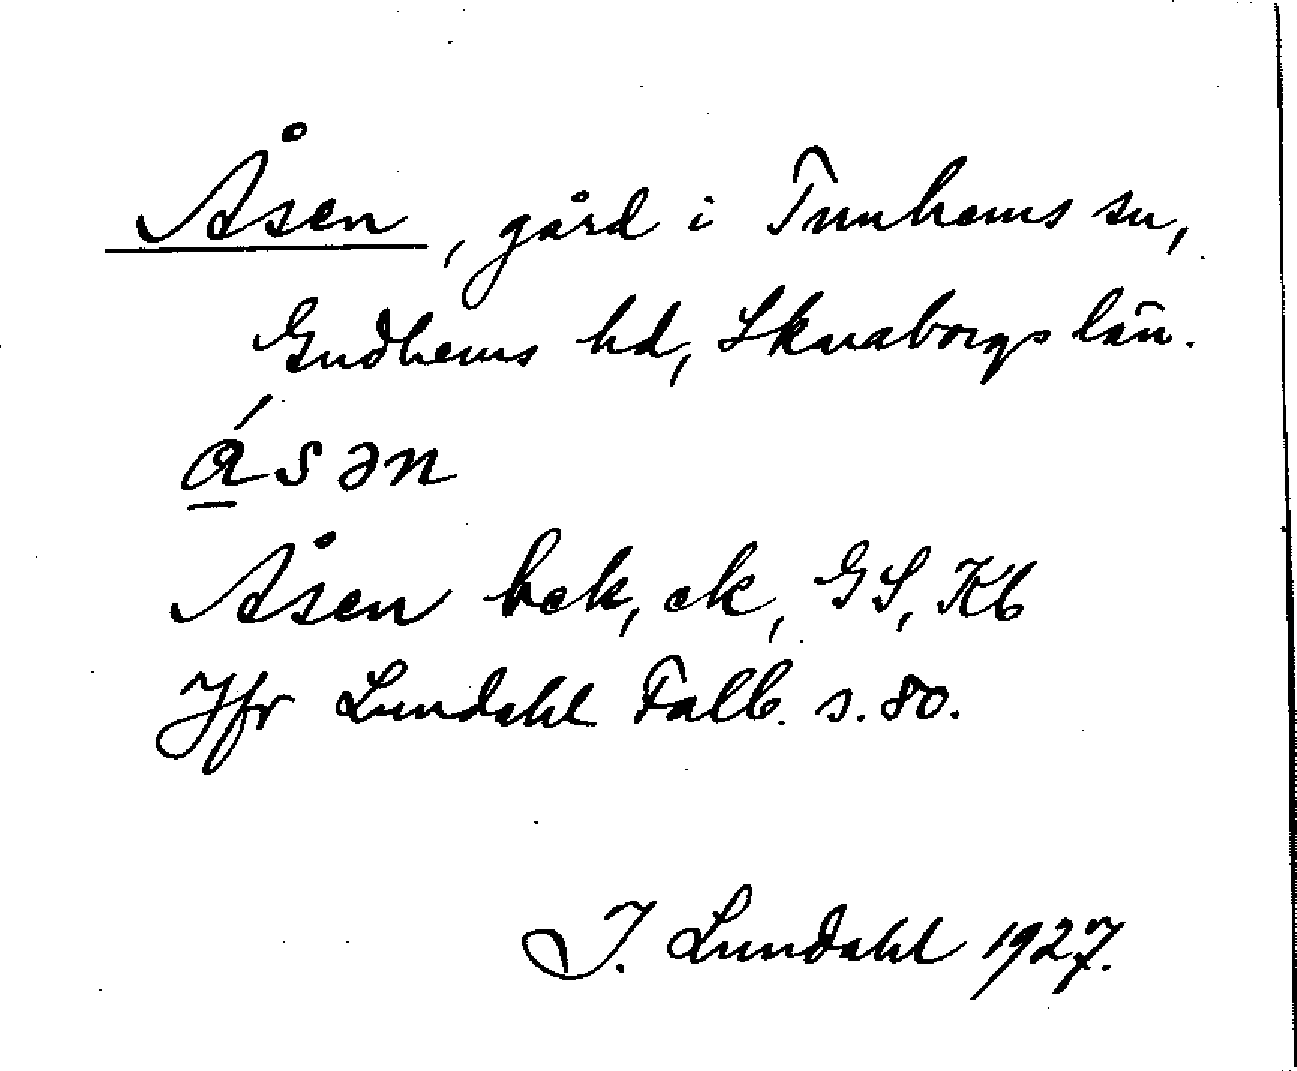 Åsen, gård i Tunhems sn,
Gudhems hd, Skaraborgs län.
ásən
Åsen hek, ek, GS, Kb
Jfr Lundahl Falb. s. 80.
I. Lundahl 1927.